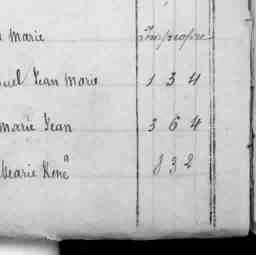 Marie Impropre
uel Jean Marie 1 3 4
marie Jean 3 6 4
Marie René 8 3 2